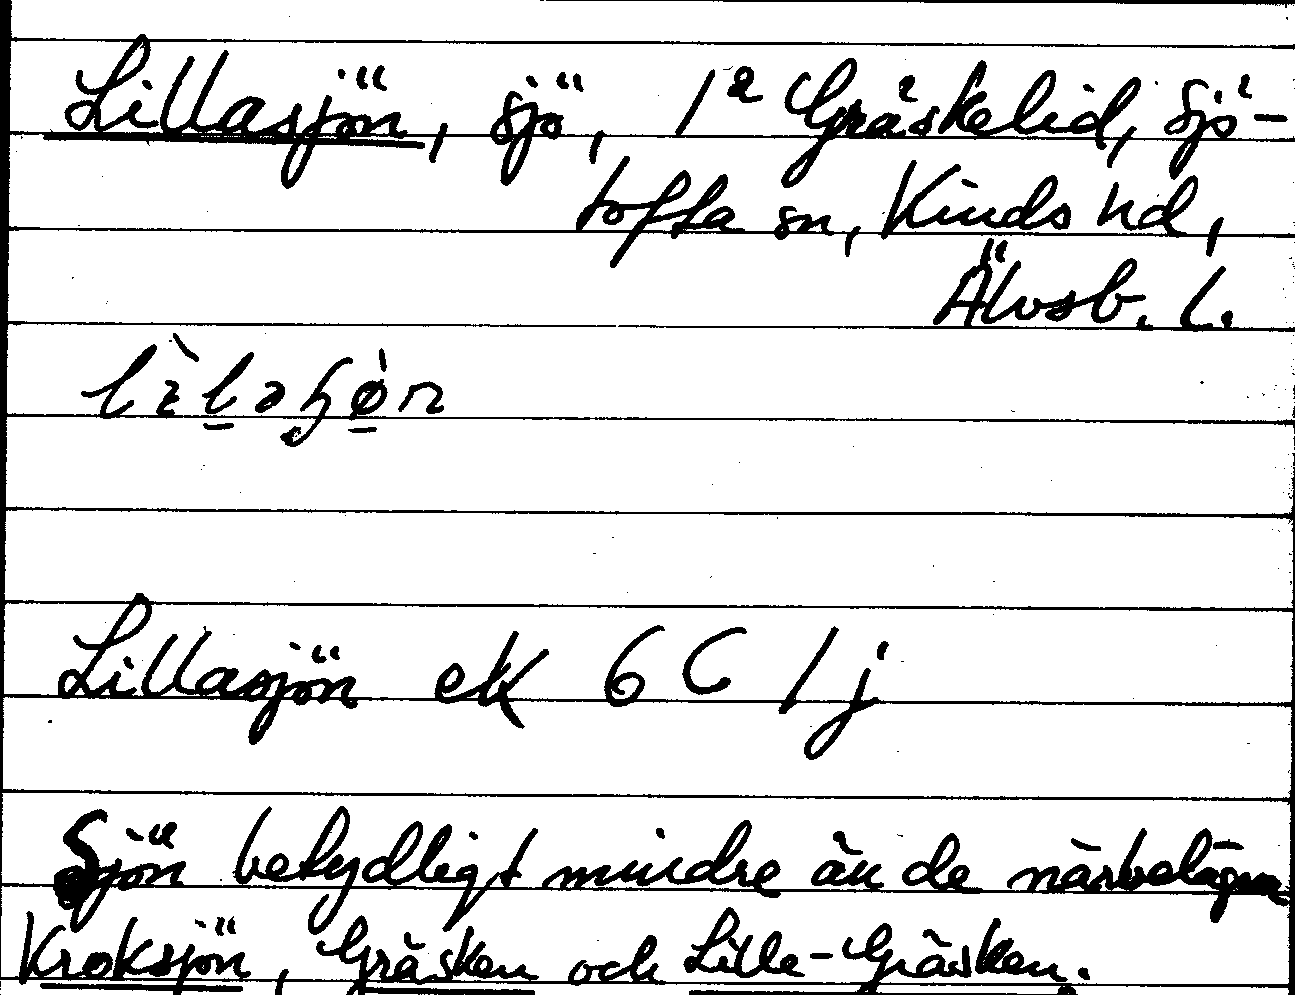 Lillasjön, sjö, 1ª Gräskelid, Sjö-
tofta sn, Kinds hd,
Älvsb. l.
Lillasjön ek 6 C 1 j
Sjön betydligt mindre än de närbelägna
Kroksjön, Gräsken och Lille-Gräsken.